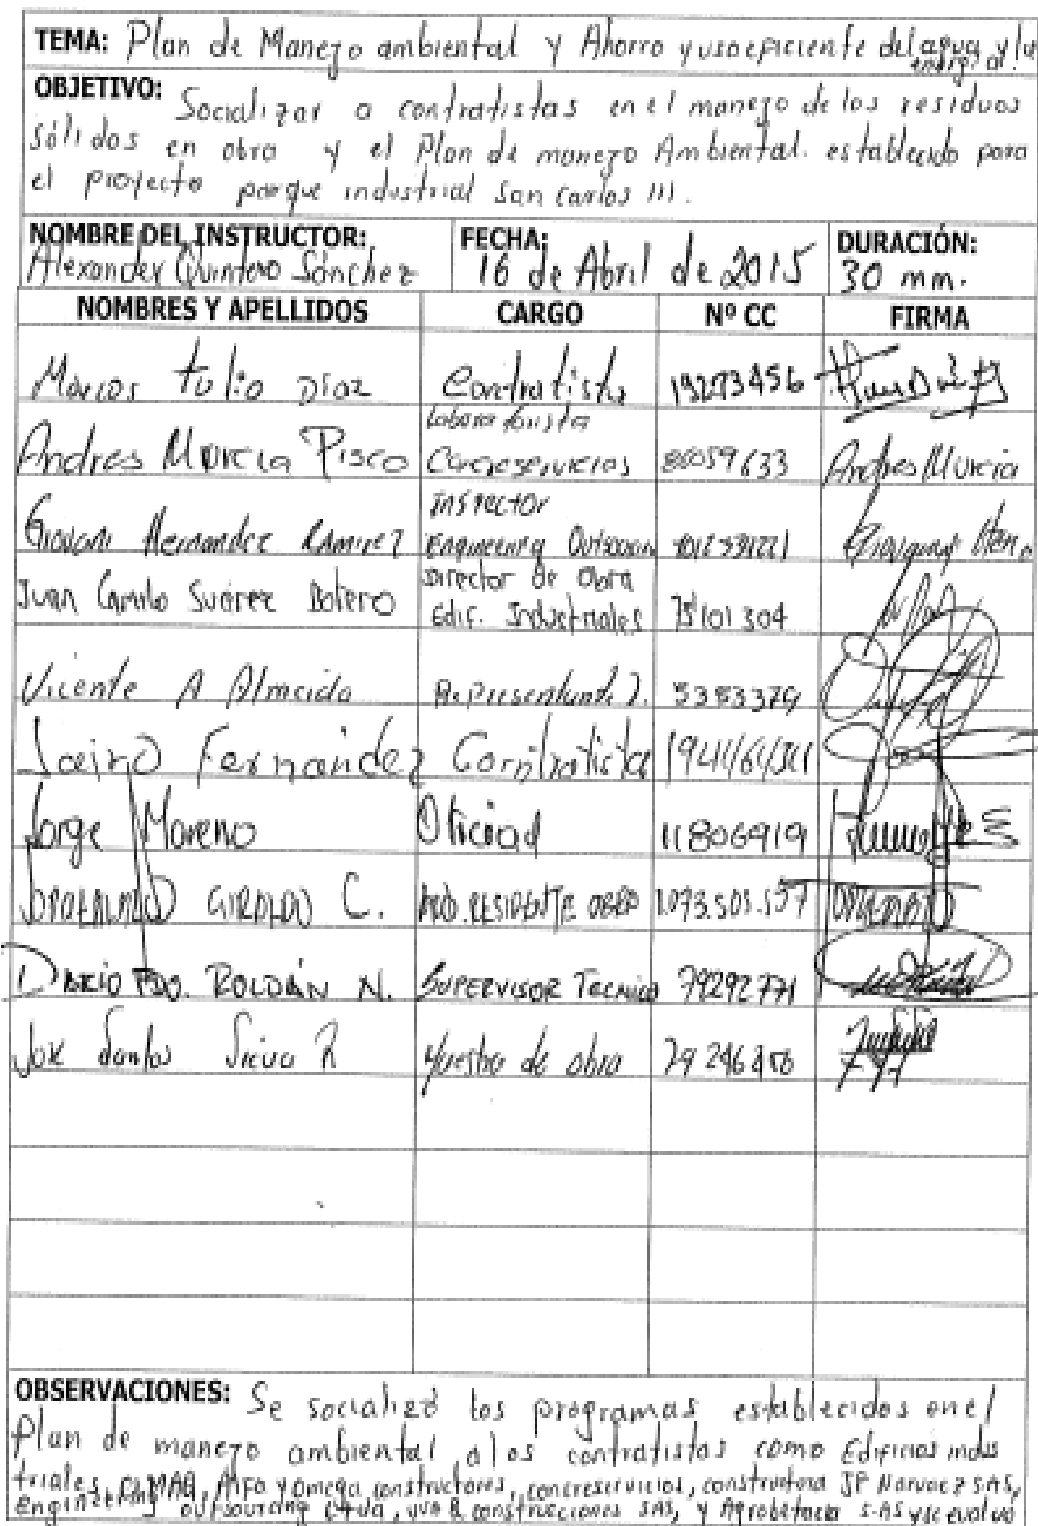 TEMA: Plan de Manejo ambiental y Ahorro y uso eficiente del agua y la
energía
OBJETIVO: Socializar a contratistas en el manejo de los residuos
sólidos en obra y el Plan de manejo Ambiental establecido para
el proyecto parque industrial San Carlos III.
NOMBRE DEL INSTRUCTOR: FECHA: DURACIÓN:
Alexander Quintero Sánchez 16 de Abril de 2015 30 min.
NOMBRES Y APELLIDOS CARGO Nº CC FIRMA
Marcos tulio Diaz Contratista 19273456
Laboratorista
Andres Murcia Pisco Concreservicios 80059633 Andres Murcia
Inspector
Giovani Hernandez Ramirez Engineering Outsourcing
Director de Obra
Juan Camilo Suárez Botero Edif. Industriales 75101304
Vicente A Almeida 5353379
Jairo Fernandez Contratista
Jorge Moreno Oficial 11806919
GIRALDO C. RESIDENTE OBRA 1.073.505.537
DARIO FDO. ROLDÁN N. SUPERVISOR Tecnico 79292771
José Santos Maestro de obra
OBSERVACIONES: Se socializó los programas establecidos en el
Plan de manejo ambiental a los contratistas como Edificios indus
triales, Omega constructores, concreservicios, constructora JP Narvaez SAS,
Engineering outsourcing construcciones SAS, y S.A.S y se evaluó